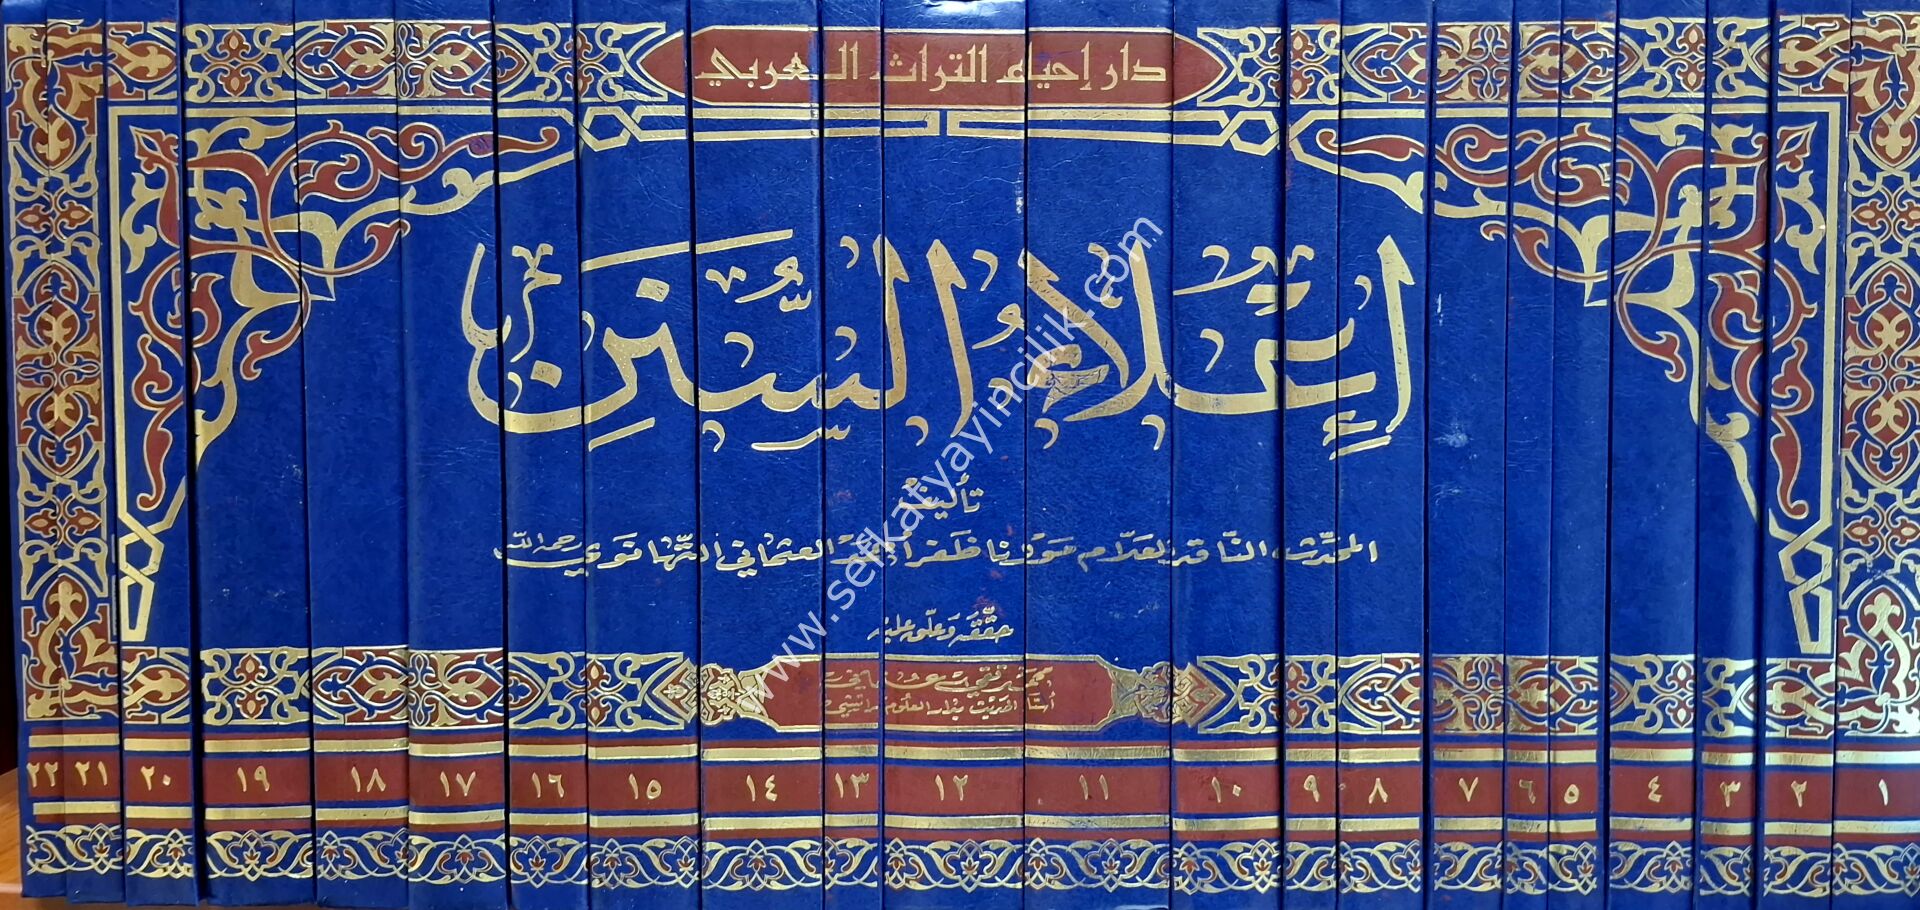 دار إحياء التراث العربي
إِعْلَاءُ السُّنَنِ
تأليف
المحدّث الناقد العلّام مولانا ظفر أحمد العثماني التهانوي رحمه الله
حقّقه وعلّق عليه
محمد تقي عثماني
أستاذ الحديث بدار العلوم كراتشي
٢٢ ٢١ ٢٠ ١٩ ١٨ ١٧ ١٦ ١٥ ١٤ ١٣ ١٢ ١١ ١٠ ٩ ٨ ٧ ٦ ٥ ٤ ٣ ٢ ١
www.sefkatyayincilik.com